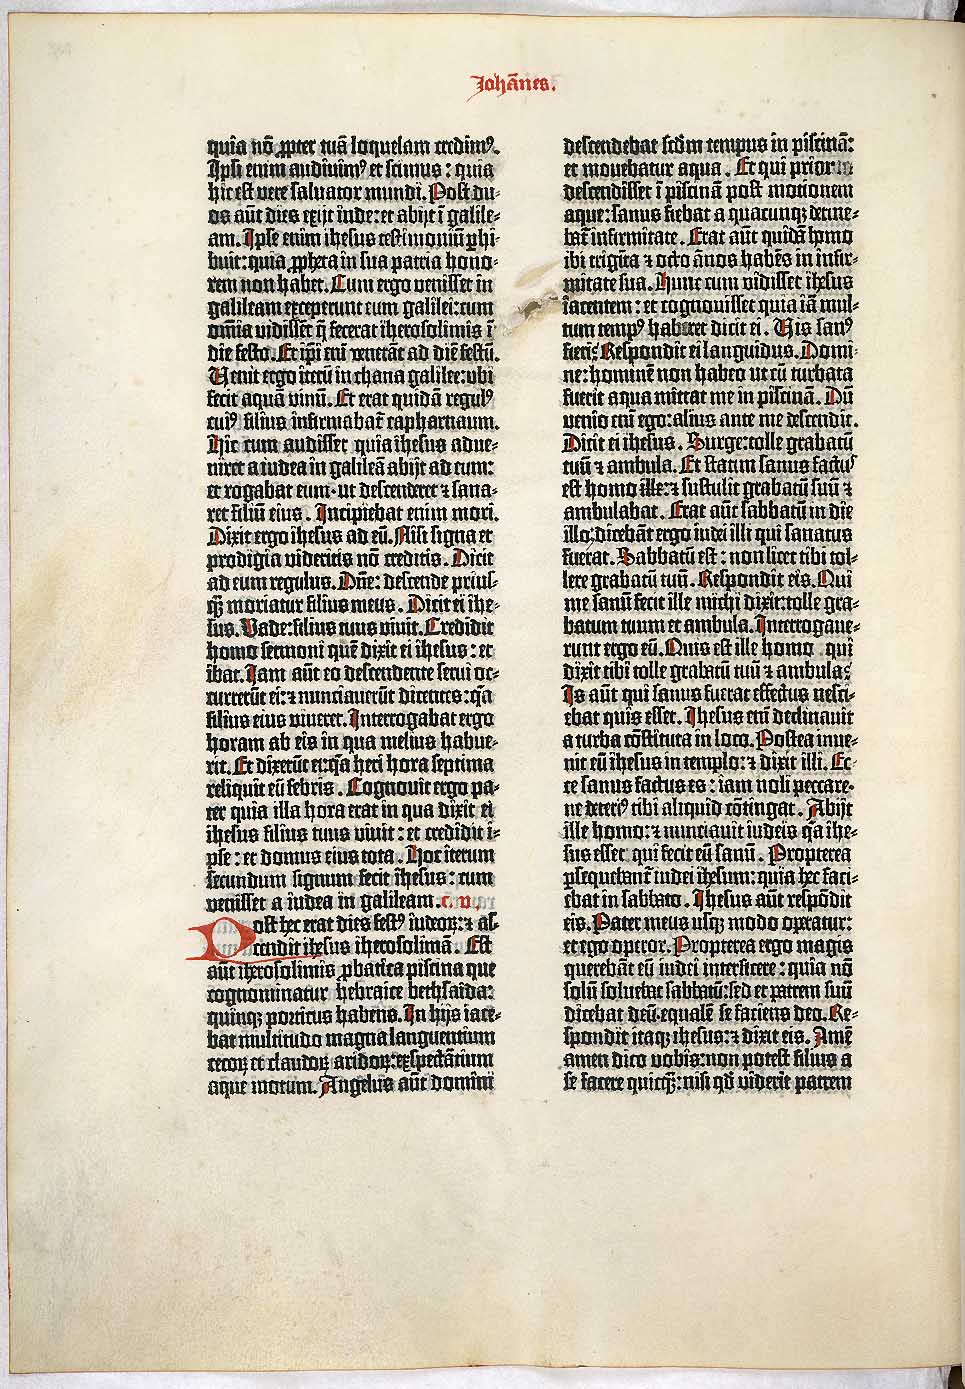 Johānes.
quia nō ꝓpter tuā loquelam credimꝰ.
Ipsi enim audiuimꝰ et scimus : quia
hic est vere saluator mundi. Post du-
os aūt dies exijt inde: et abijt ī galile-
am. Ipse enim ihesus testimoniū ꝑhi-
buit: quia ꝓpheta in sua patria hono-
rem non habet. Cum ergo venisset in
galileam exceperunt eum galilei: cum
omīa vidissēt q̄ fecerat iherosolimis ī
die festo. Et ip̄i em̄ venerāt ad diē festū.
Venit ergo iterū in chana galilee: vbi
fecit aquā vinū. Et erat quidā regulꝰ
cuiꝰ filius infirmabat̄ capharnaum.
Hic cum audisset quia ihesus adue-
niret a iudea in galileā abijt ad eum:
et rogabat eum · ut descenderet ⁊ sana-
ret filiū eius. Incipiebat enim mori.
Dixit ergo ihesus ad eū. Nisi signa et
prodigia videritis nō creditis. Dicit
ad eum regulus. Dn̄e: descende prius-
qꝫ̄ moriatur filius meus. Dicit ei ihe-
sus. Vade: filius tuus viuit. Credidit
homo sermoni quē dixit ei ihesus : et
ibat. Iam aūt eo descendente serui oc-
currerūt ei: ⁊ nunciauerūt dicentes: qa
filius eius viueret. Interrogabat ergo
horam ab eis in qua melius habue-
rit. Et dixerūt ei: qa heri hora septima
reliquit eū febris. Cognouit ergo pa-
ter quia illa hora erat in qua dixit ei
ihesus filius tuus viuit : et credidit i-
pse : et domus eius tota. Hoc iterum
secundum signum fecit ihesus : cum
venisset a iudea in galileam. c. v.
Post hec erat dies festꝰ iudeoꝝ: ⁊ as-
cendit ihesus iherosolimā. Est
aūt iherosolimis ꝓbatica piscina que
cognominatur hebraice bethsaida:
quinqꝫ porticus habens. In hijs iace-
bat multitudo magna languentium
cecoꝝ et claudoꝝ aridoꝝ: exspectātium
aque motum. Angelus aūt domini
descendebat scd̄m tempus in piscinā:
et mouebatur aqua. Et qui prior
descendisset ī piscinā post motionem
aque: sanus fiebat a quacunqꝫ detine-
bat̄ infirmitate. Erat aūt quidā homo
ibi triginta ⁊ octo ānos habēs in infir-
mitate sua. Hunc cum vidisset ihesus
iacentem : et cognouisset quia iā mul-
tum tempꝰ haberet dicit ei. Vis sanꝰ
fieri? Respondit ei languidus. Domi-
ne: hominē non habeo ut cū turbata
fuerit aqua mittat me in piscinā. Dū
venio em̄ ego: alius ante me descendit.
Dicit ei ihesus. Surge: tolle grabatū
tuū ⁊ ambula. Et statim sanus factꝰ
est homo ille: ⁊ sustulit grabatū suū ⁊
ambulabat. Erat aūt sabbatū in die
illo: dicebāt ergo iudei illi qui sanatus
fuerat. Sabbatū est : non licet tibi tol-
lere grabatū tuū. Respondit eis. Qui
me sanū fecit ille michi dixit: tolle gra-
batum tuum et ambula. Interrogaue-
runt ergo eū. Quis est ille homo qui
dixit tibi tolle grabatū tuū ⁊ ambula?
Is aūt qui sanus fuerat effectus nesci-
ebat quis esset. Ihesus em̄ declinauit
a turba cōstituta in loco. Postea inue-
nit eū ihesus in templo: ⁊ dixit illi. Ec-
ce sanus factus es : iam noli peccare ·
ne deteriꝰ tibi aliquid cōtingat. Abijt
ille homo: ⁊ nunciauit iudeis qa ihe-
sus esset qui fecit eū sanū. Propterea
ꝑsequebant̄ iudei ihesum: quia hec faci-
ebat in sabbato. Ihesus aūt respōdit
eis. Pater meus usqꝫ modo operatur:
et ego operor. Propterea ergo magis
querebāt eū iudei interficere : quia nō
solū soluebat sabbatū: sed et patrem suū
dicebat deū: equalē se faciens deo. Re-
spondit itaqꝫ ihesus: ⁊ dixit eis. Amē
amen dico vobis: non potest filius a
se facere quicqꝫ̄: nisi qd̄ viderit patrem